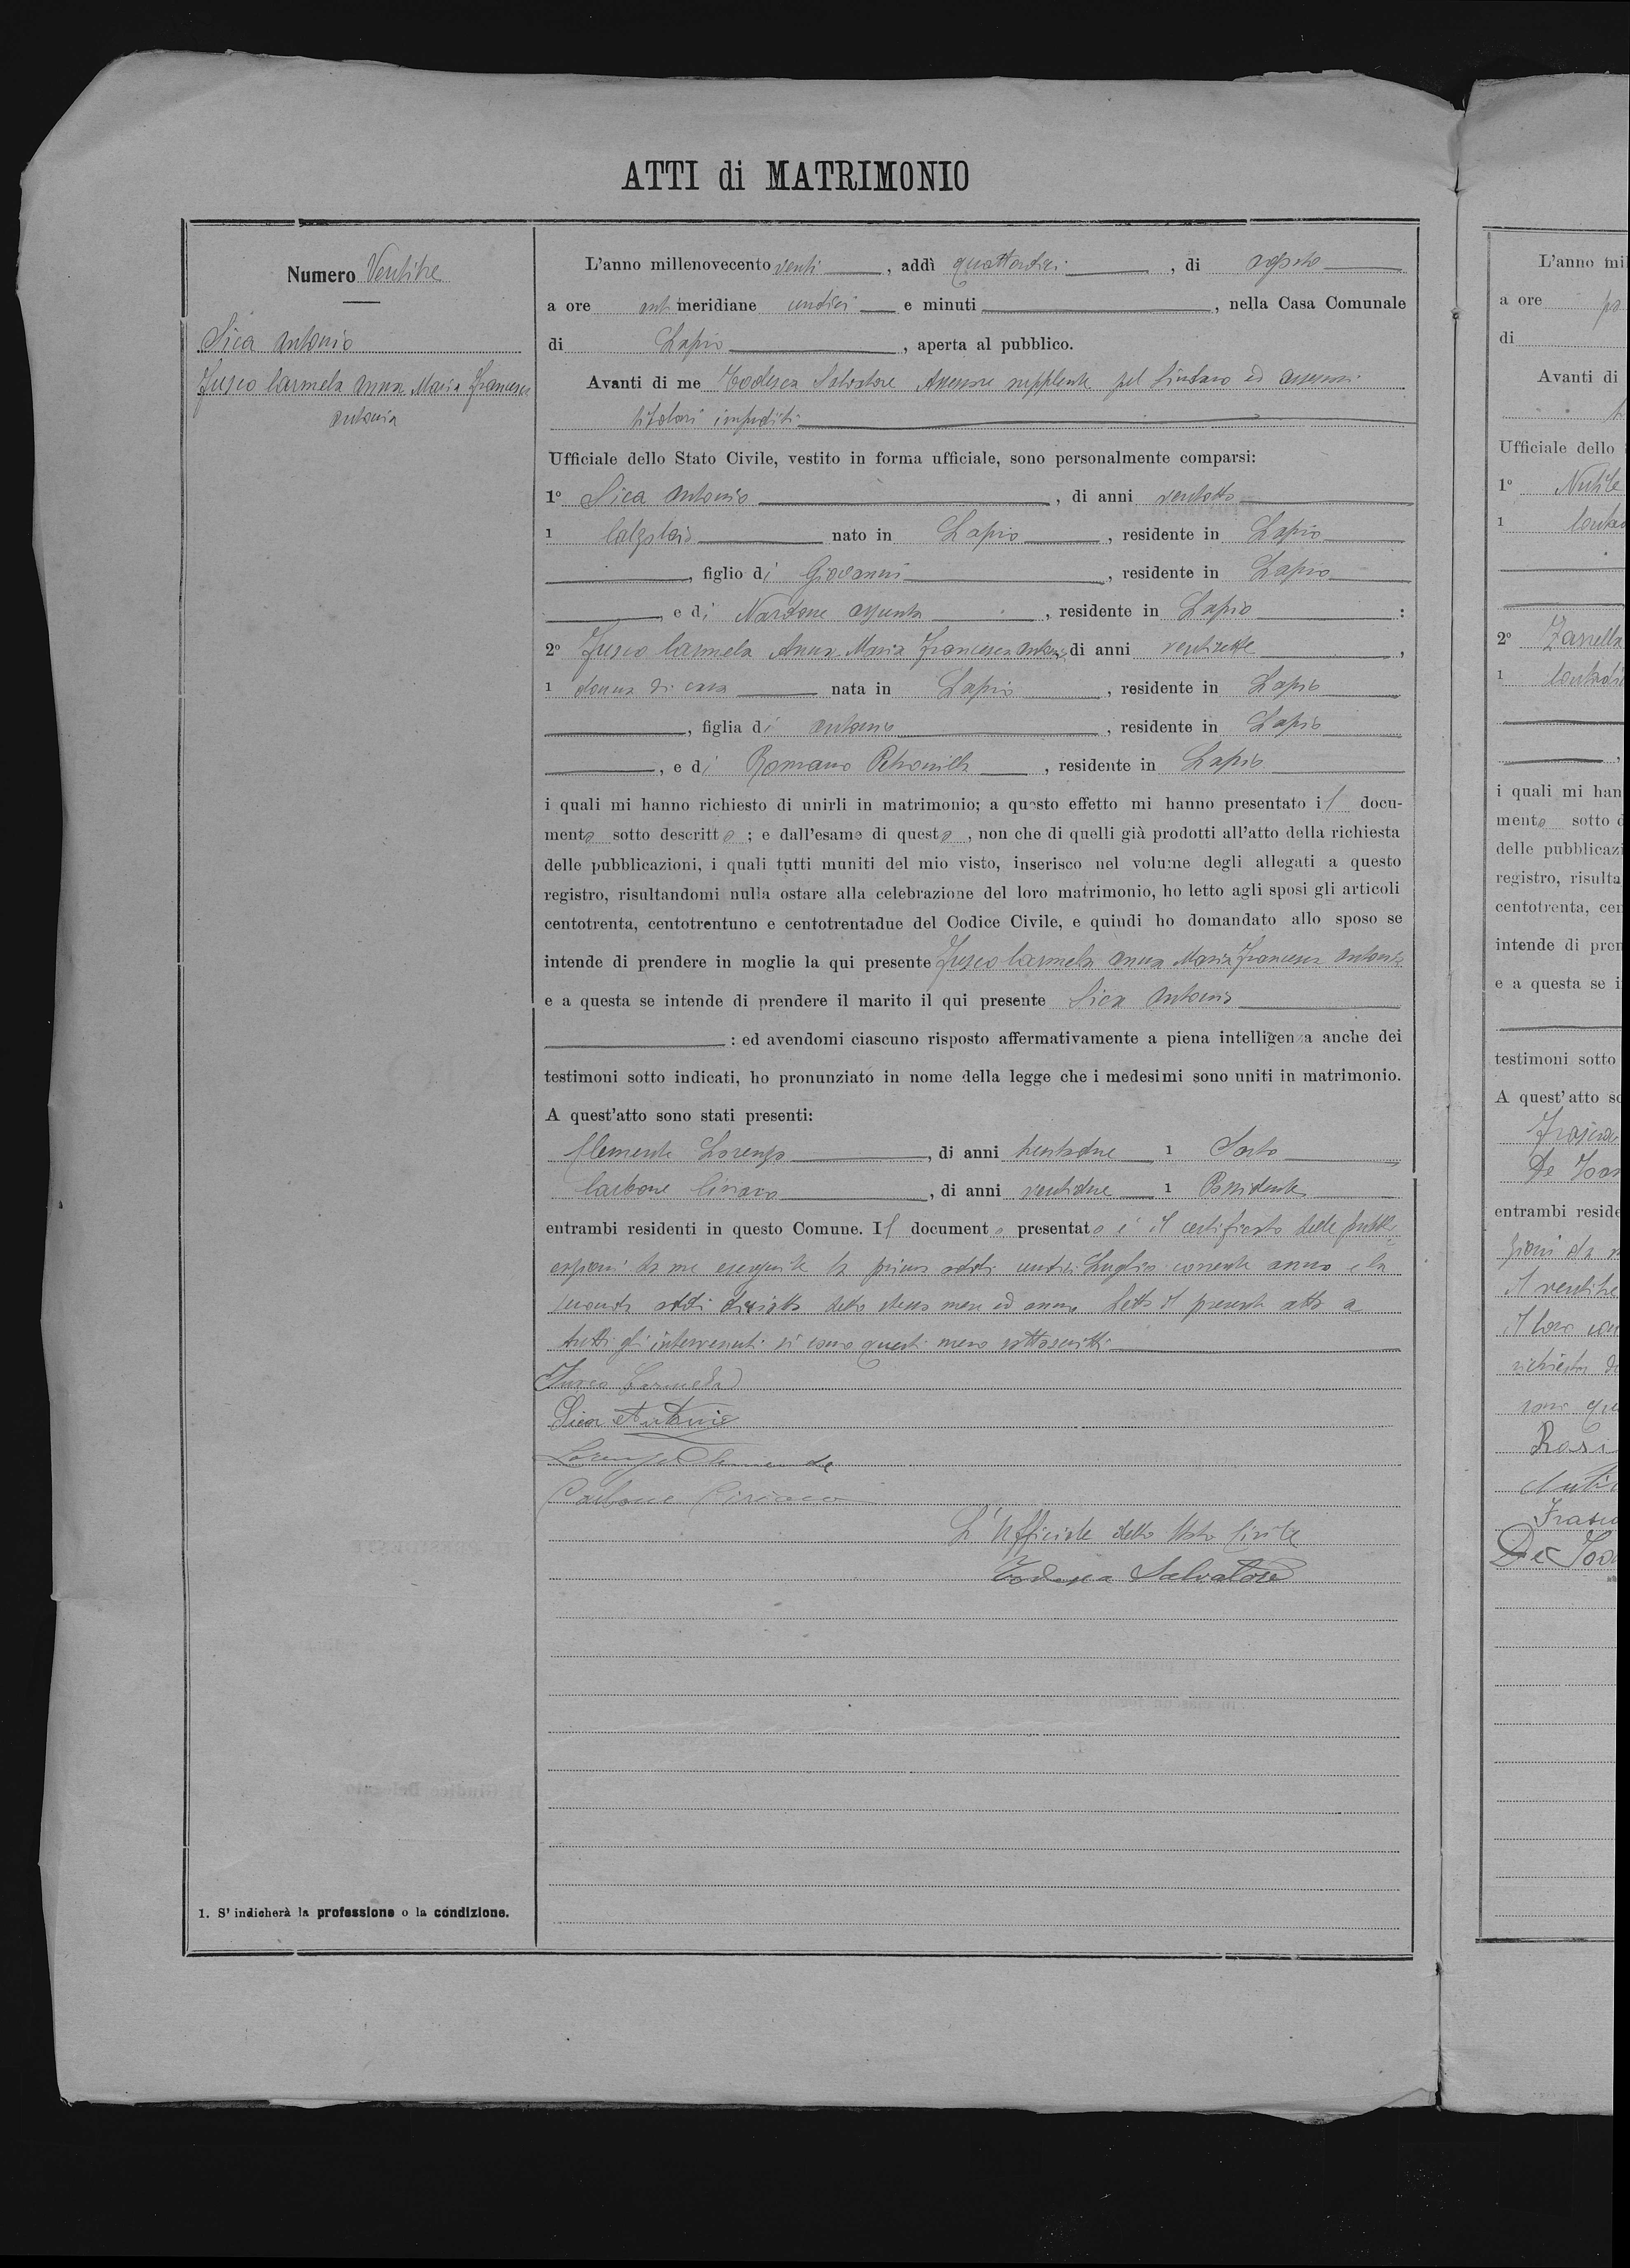 ATTI di MATRIMONIO
Numero Ventitre
Sica Antonio
Fusco Carmela Anna Maria Francesca
Antonia
1. S' indicherà la professione o la condizione.
L'anno millenovecento venti, addì quattordici, di agosto
a ore anti meridiane undici e minuti, nella Casa Comunale
di Lapio, aperta al pubblico.
Avanti di me Todesca Salvatore Assessore supplente pel Sindaco ed assessori
titolari impediti
Ufficiale dello Stato Civile, vestito in forma ufficiale, sono personalmente comparsi:
1º Sica Antonio, di anni ventotto
1 Calzolaio nato in Lapio, residente in Lapio
, figlio di Giovanni, residente in Lapio
, e di Nardone Assunta, residente in Lapio :
2º Fusco Carmela Anna Maria Francesca Antonia di anni ventisette,
1 donna di casa nata in Lapio, residente in Lapio
, figlia di Antonio, residente in Lapio
, e di Romano Petronilla, residente in Lapio
i quali mi hanno richiesto di unirli in matrimonio; a questo effetto mi hanno presentato il docu-
mento sotto descritto ; e dall'esame di questo , non che di quelli già prodotti all'atto della richiesta
delle pubblicazioni, i quali tutti muniti del mio visto, inserisco nel volume degli allegati a questo
registro, risultandomi nulla ostare alla celebrazione del loro matrimonio, ho letto agli sposi gli articoli
centotrenta, centotrentuno e centotrentadue del Codice Civile, e quindi ho domandato allo sposo se
intende di prendere in moglie la qui presente Fusco Carmela Anna Maria Francesca Antonia
e a questa se intende di prendere il marito il qui presente Sica Antonio
: ed avendomi ciascuno risposto affermativamente a piena intelligenza anche dei
testimoni sotto indicati, ho pronunziato in nome della legge che i medesimi sono uniti in matrimonio.
A quest'atto sono stati presenti:
Clemente Lorenzo, di anni trentadue 1 Sarto
Carbone Ciriaco, di anni ventidue 1 Possidente
entrambi residenti in questo Comune. Il documento presentato è il certificato delle pubbli
cazioni da me eseguite la prima addì undici Luglio corrente anno e la
seconda addì diciotto detto stesso mese ed anno. Letto il presente atto a
tutti gli intervenuti si sono questi meco sottoscritti
Fusco Carmela
Sica Antonio
Lorenzo Clemente
Carbone Ciriaco
L'Ufficiale dello Stato Civile
Todesca Salvatore
L'anno mil
a ore
di
Avanti di
Ufficiale dello
1º
1
2º Zarrella
1
i quali mi han
mento sotto d
delle pubblicazi
registro, risulta
centotrenta, cen
intende di pren
e a questa se i
testimoni sotto
A quest'atto so
entrambi reside